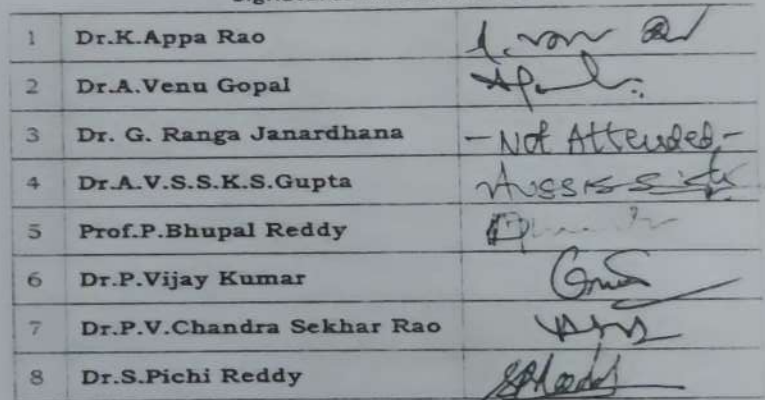 1 Dr.K.Appa Rao
2 Dr.A.Venu Gopal
3 Dr. G. Ranga Janardhana - Not Attended -
4 Dr.A.V.S.S.K.S.Gupta
5 Prof.P.Bhupal Reddy
6 Dr.P.Vijay Kumar
7 Dr.P.V.Chandra Sekhar Rao
8 Dr.S.Pichi Reddy